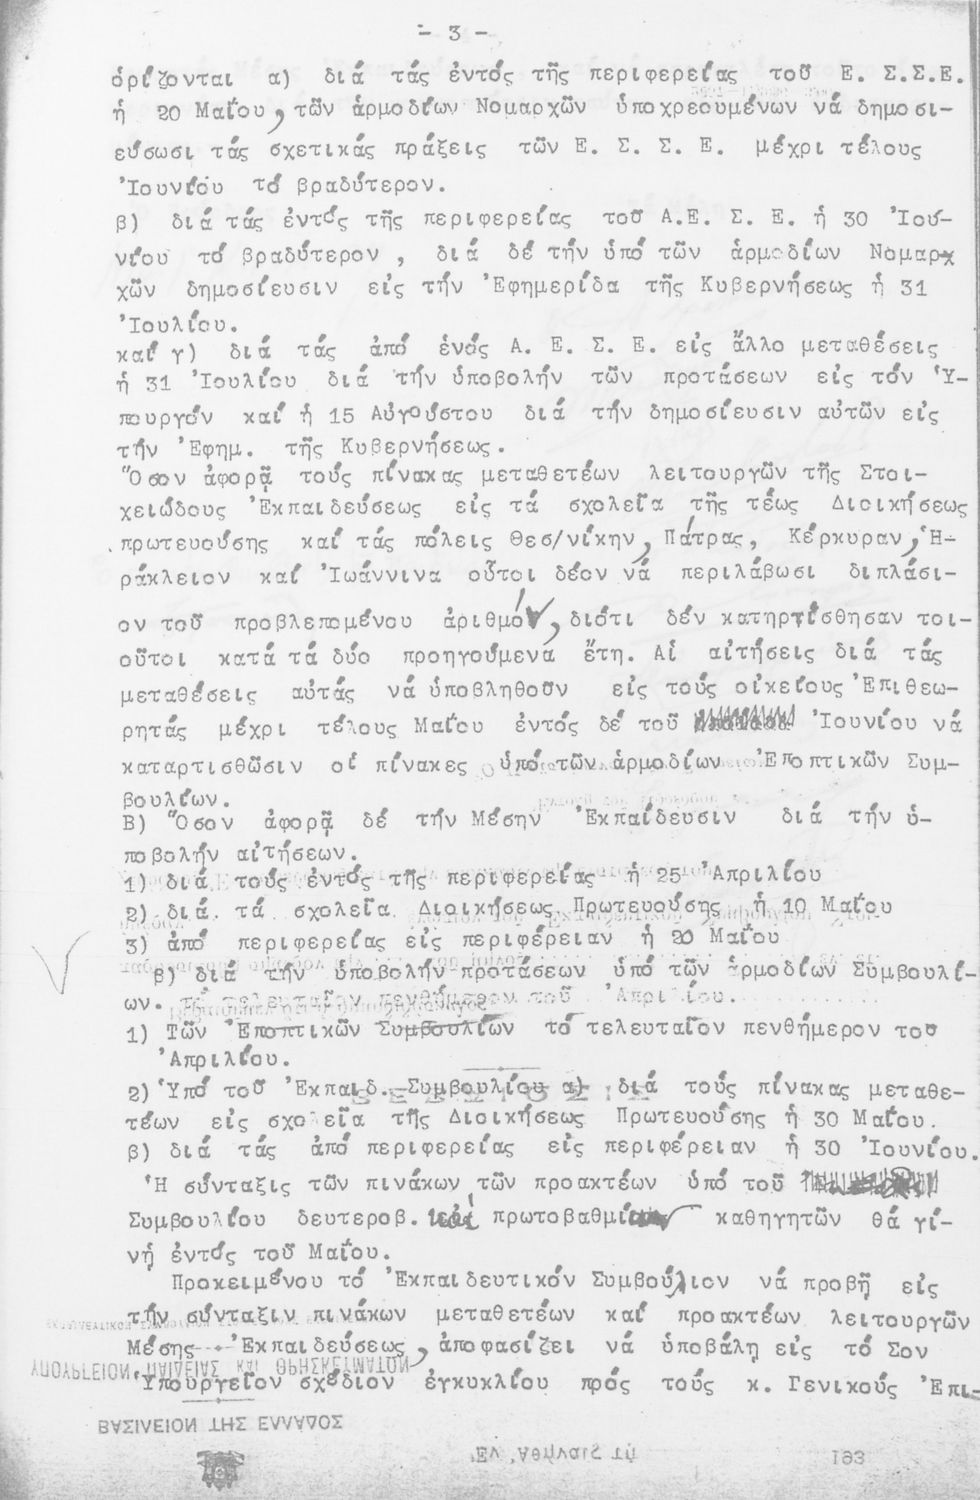 - 3 -
ὁρίζονται α) διά τάς ἐντός τῆς περιφερείας τοῦ Ε. Σ.Σ.Ε.
ἡ 20 Μαΐου, τῶν ἁρμοδίων Νομαρχῶν ὑποχρεουμένων νά δημοσι-
εύσωσι τάς σχετικάς πράξεις τῶν Ε. Σ. Σ. Ε. μέχρι τέλους
Ἰουνίου τό βραδύτερον.
β) διά τάς ἐντός τῆς περιφερείας τοῦ Α.Ε. Σ. Ε. ἡ 30 Ἰου-
νίου τό βραδύτερον , διά δέ τήν ὑπό τῶν ἁρμοδίων Νομαρχ
χῶν δημοσίευσιν εἰς τήν Ἐφημερίδα τῆς Κυβερνήσεως ἡ 31
Ἰουλίου.
καί γ) διά τάς ἀπό ἑνός Α. Ε. Σ. Ε. εἰς ἄλλο μεταθέσεις
ἡ 31 Ἰουλίου διά τήν ὑποβολήν τῶν προτάσεων εἰς τόν Ὑ-
πουργόν καί ἡ 15 Αὐγούστου διά τήν δημοσίευσιν αὐτῶν εἰς
τήν Ἐφημ. τῆς Κυβερνήσεως.
Ὅσον ἀφορᾷ τούς πίνακας μεταθετέων λειτουργῶν τῆς Στοι-
χειώδους Ἐκπαιδεύσεως εἰς τά σχολεῖα τῆς τέως Διοικήσεως
πρωτευούσης καί τάς πόλεις Θεσ/νίκην, Πάτρας, Κέρκυραν, Ἡ-
ράκλειον καί Ἰωάννινα οὗτοι δέον νά περιλάβωσι διπλάσι-
ον τοῦ προβλεπομένου ἀριθμόν, διότι δέν κατηρτίσθησαν τοι-
οῦτοι κατά τά δύο προηγούμενα ἔτη. Αἱ αἰτήσεις διά τάς
μεταθέσεις αὐτάς νά ὑποβληθοῦν εἰς τούς οἰκείους Ἐπιθεω-
ρητάς μέχρι τέλους Μαΐου ἐντός δέ τοῦ Ἰουνίου νά
καταρτισθῶσιν οἱ πίνακες ὑπό τῶν ἁρμοδίων Ἐποπτικῶν Συμ-
βουλίων.
Β) Ὅσον ἀφορᾷ δέ τήν Μέσην Ἐκπαίδευσιν διά τήν ὑ-
ποβολήν αἰτήσεων.
1) διά τούς ἐντός τῆς περιφερείας ἡ 25 Ἀπριλίου
2) διά τά σχολεῖα Διοικήσεως Πρωτευούσης ἡ 10 Μαΐου
3) ἀπό περιφερείας εἰς περιφέρειαν ἡ 20 Μαΐου
β) διά τήν ὑποβολήν προτάσεων ὑπό τῶν ἁρμοδίων Συμβουλί-
ων. τό τελευταῖον πενθήμερον τοῦ Ἀπριλίου.
1) Τῶν Ἐποπτικῶν Συμβουλίων τό τελευταῖον πενθήμερον του
Ἀπριλίου.
2) Ὑπό τοῦ Ἐκπαιδ. Συμβουλίου α) διά τούς πίνακας μεταθε-
τέων εἰς σχολεῖα τῆς Διοικήσεως Πρωτευούσης ἡ 30 Μαΐου.
β) διά τάς ἀπό περιφερείας εἰς περιφέρειαν ἡ 30 Ἰουνίου.
Ἡ σύνταξις τῶν πινάκων τῶν προακτέων ὑπό τοῦ
Συμβουλίου δευτεροβ. καί πρωτοβαθμίων καθηγητῶν θά γί-
νῃ ἐντός τοῦ Μαΐου.
Προκειμένου τό Ἐκπαιδευτικόν Συμβούλιον νά προβῇ εἰς
τήν σύνταξιν πινάκων μεταθετέων καί προακτέων λειτουργῶν
Μέσης Ἐκπαιδεύσεως, ἀποφασίζει νά ὑποβάλῃ εἰς τό Σον
Ὑπουργεῖον σχέδιον ἐγκυκλίου πρός τούς κ. Γενικούς Ἐπι-
ΥΠΟΥΡΓΕΙΟΝ ΠΑΙΔΕΙΑΣ ΚΑΙ ΘΡΗΣΚΕΥΜΑΤΩΝ
ΒΑΣΙΛΕΙΟΝ ΤΗΣ ΕΛΛΑΔΟΣ
Ἐν Ἀθήναις τῇ 193